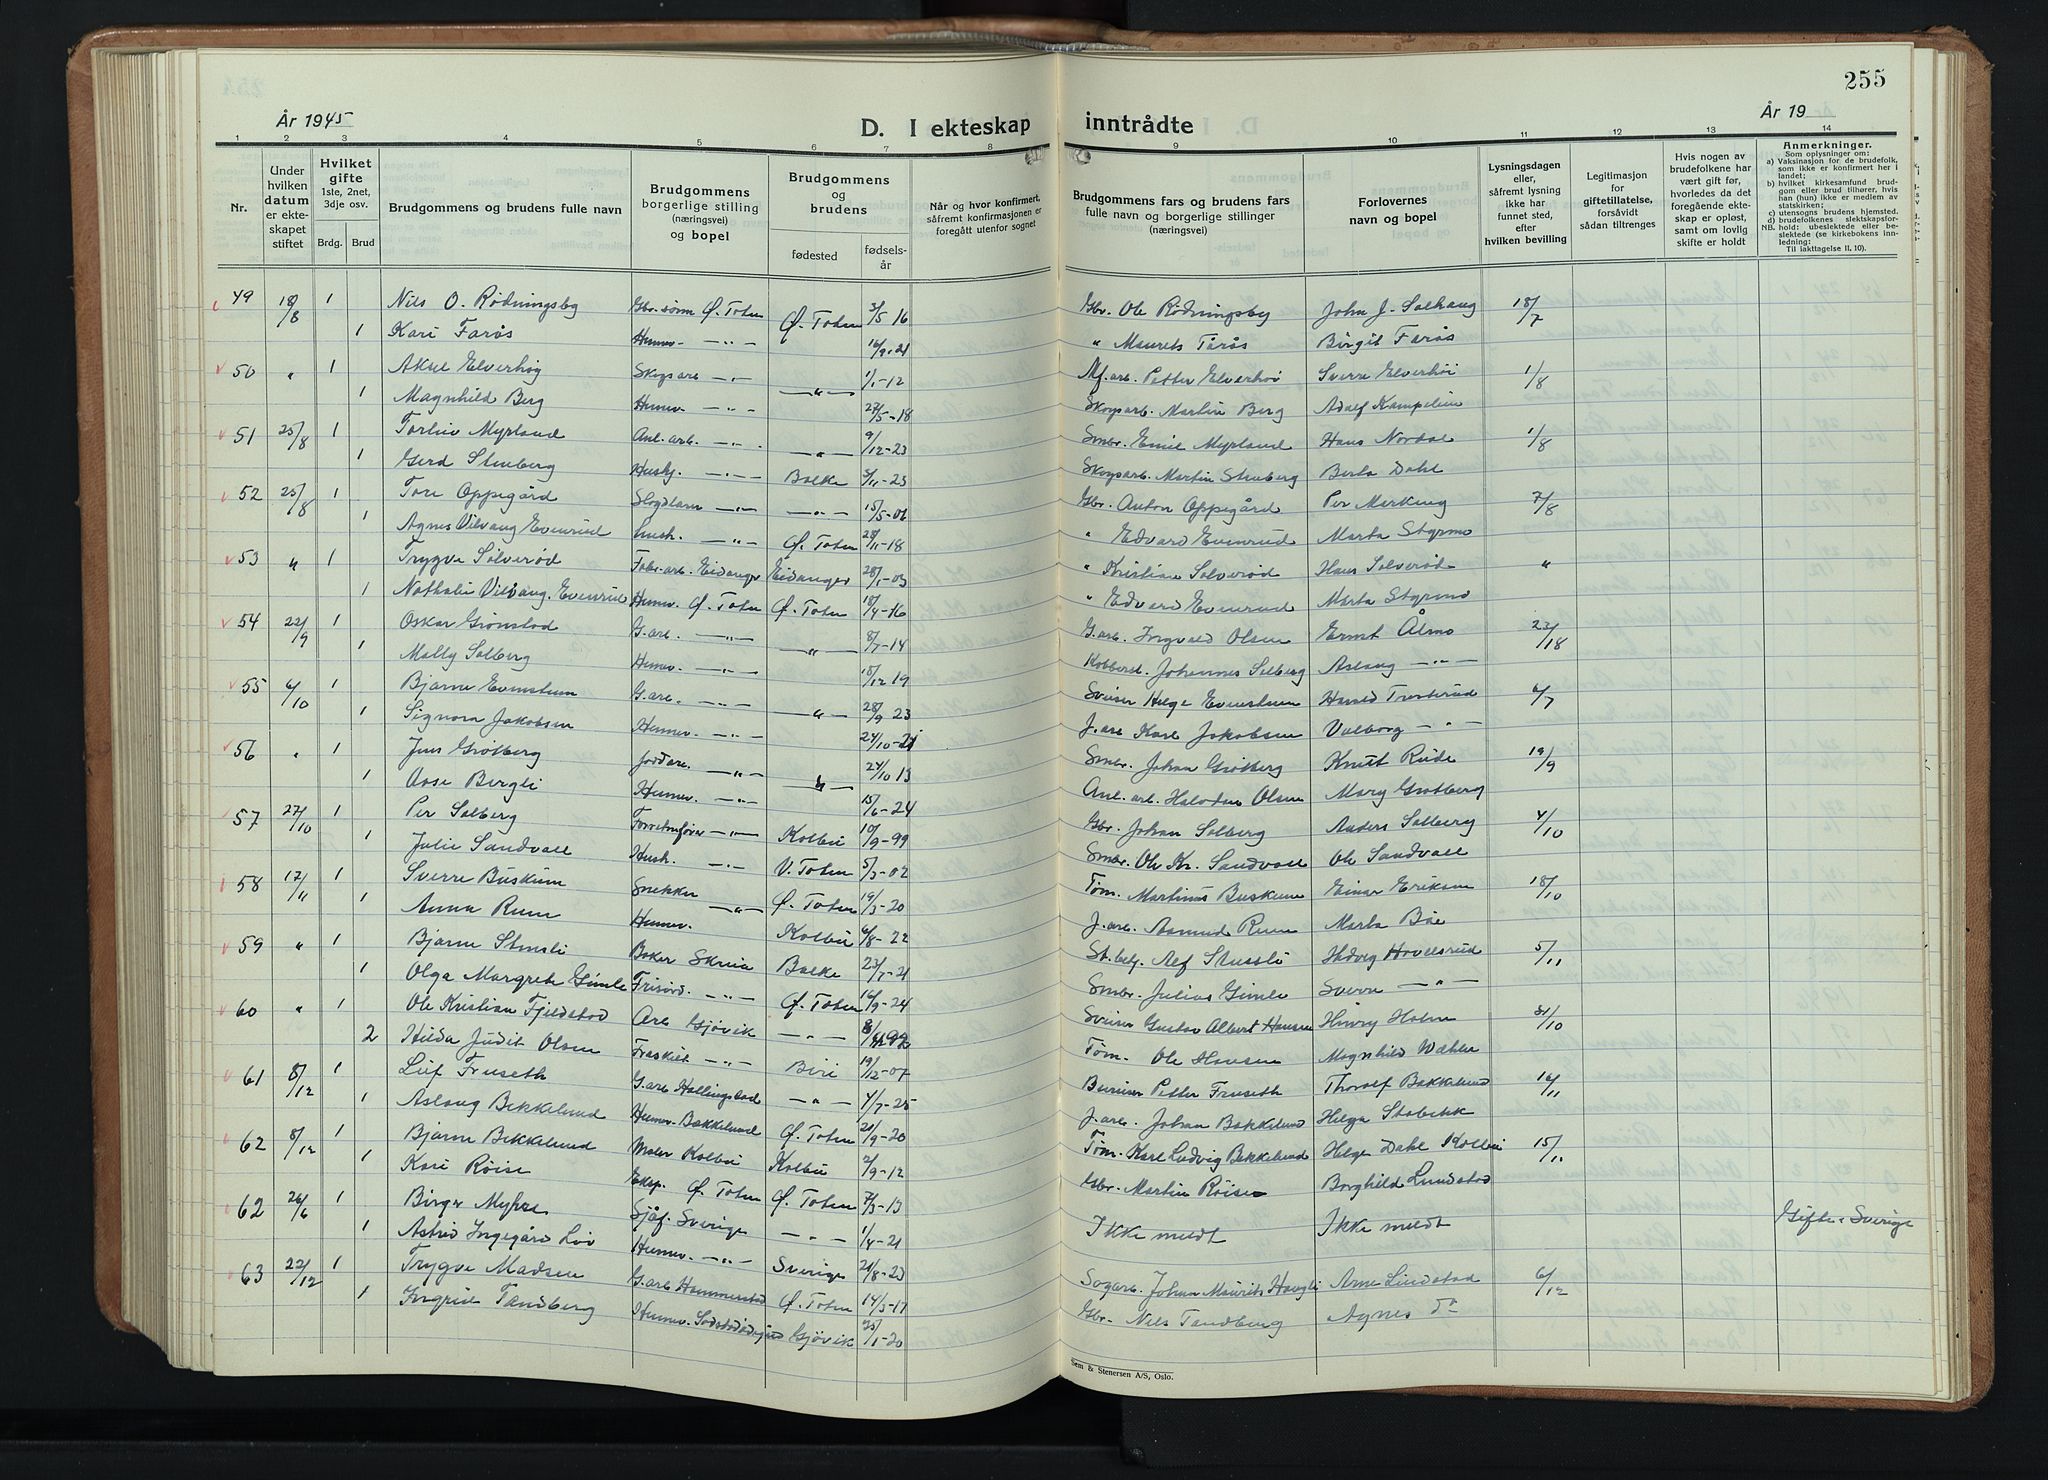 255
År 1945
D. I ekteskap inntrådte
År 19
1 2 3 4 5 6 7 8 9 10 11 12 13 14
Nr.
Under hvilken datum er ekteskapet stiftet
Hvilket gifte 1ste, 2net, 3dje osv.
Brdg. Brud
Brudgommens og brudens fulle navn
Brudgommens borgerlige stilling (næringsvei) og bopel
Brudgommens og brudens
fødested
fødselsår
Når og hvor konfirmert, såfremt konfirmasjonen er foregått utenfor sognet
Brudgommens fars og brudens fars fulle navn og borgerlige stillinger (næringsvei)
Forlovernes navn og bopel
Lysningsdagen eller, såfremt lysning ikke har funnet sted, efter hvilken bevilling
Legitimasjon for giftetillatelse, forsåvidt sådan tiltrenges
Hvis nogen av brudefolkene har vært gift før, hvorledes da det foregående ekteskap er opløst, samt om lovlig skifte er holdt
Anmerkninger.
Som oplysninger om:
a) Vaksinasjon for de brudefolk, som ikke er konfirmert her i landet;
b) hvilket kirkesamfund brudgom eller brud tilhører, hvis han (hun) ikke er medlem av statskirken;
c) utensogns brudens hjemsted.
d) brudefolkenes slektskapsforhold: ubeslektede eller beslektede (se kirkebokens innledning:
NB. Til iakttagelse II, 10).
49 18/8 1 Nils O. Rødningsby Gbr.sønn Ø. Toten Ø. Toten 3/5 16 Gbr. Ole Rødningsby John J. Solhaug 18/7
1 Kari Farås Hemv. —"— 16/9-21 " Maurits Farås Birgit Farås
50 " 1 Aksel Elverhøy Skogsarb. —"— —"— 1/1-12 Petter Elverhøi Sverre Elverhøi 1/8
1 Magnhild Berg Hemv. —"— 27/5-18 Skogsarb. Martin Berg Adolf
51 25/8 1 Torleiv Myrland Anl. arb. —"— —"— 9/12-23 Smbr. Emil Myrland Hans Nordal 1/8
1 Gerd Stenberg Hushj. —"— Balke 3/11-23 Skogsarb. Martin Stenberg Berta Dahl
52 25/8 1 Tore Oppegård —"— —"— 15/5-02 Gbr. Anton Oppegård Per 7/8
1 Agnes Vilvang Evenrud Hush. —"— Ø. Toten 28/11-18 " Edvard Evenrud Marta Styrmo
53 " 1 Trygve Sølverød Fabr.arb. Eidanger Eidanger 28/1-03 " Kristian Sølverød Hans Sølverød "
1 Nathalie Vilvang Evenrud Hemv. Ø. Toten Ø. Toten 18/4-16 " Edvard Evenrud Marta Styrmo
54 22/9 1 Oskar Grønstad G.arb. —"— —"— 8/7-14 G.arb. Ingvald Olsen Ernst Ålmo 23/18
1 Molly Solberg Hemv. —"— 15/12 19 Johannes Solberg Aslaug —"—
55 6/10 1 Bjarne Evenstuen G.arb. —"— —"— 28/9 23 Sveiser Helge Evenstuen Harald 6/7
1 Signora Jakobsen Hemv. —"— 24/10-21 J.arb. Karl Jakobsen Valborg —"—
56 " 1 Jens Grøtberg Jordarb. —"— —"— 24/10 13 Smbr. Johan Grøtberg Knut Rude 19/9
1 Aase Bergli Hemv. —"— 15/6-24 Anl. arb. Halvdan Olsen Mary Grøtberg
57 27/10 1 Per Solberg —"— Kolbu 10/9-99 Gbr. Johan Solberg Anders Solberg 4/10
1 Julie Sandvoll Hush. —"— V. Toten 5/3-02 Smbr. Ole Kr. Sandvoll Ole Sandvoll
58 17/11 1 Sverre Buskum Snekker —"— Ø. Toten 19/3-20 Tøm. Martinus Buskum Einar Eriksen 18/10
1 Anna Ruen Hemv. Kolbu 6/8-22 J.arb. Aamund Ruen Marta Bøe
59 " 1 Bjarne Stensli Baker Skreia Balke 23/7-21 St.betj. Alf Stensli Hedvig Hovelsrud 5/11
1 Olga Margrete Gimle Frisørd. —"— Ø. Toten 16/9-24 Smbr. Julius Gimle Sverre —"—
60 " 1 Ole Kristian Fjeldstad Arb. Gjøvik —"— Sveiser Gustav Albert Hansen Henry Holm 31/10
2 Hilda Judit Olsen Fraskilt —"— Biri 19/12-07 Tøm. Ole Hansen Magnhild Wæhler
61 8/12 1 Leif Fruseth G.arb. Hallingstad —"— 4/7-25 Petter Fruseth Thoralf Bakkelund 16/11
1 Aslaug Bekkelund Hemv. Bakkelund Ø. Toten 20/9-20 J.arb. Johan Bakkelund Helga Stabekk
62 8/12 1 Bjarne Bekkelund Maler Kolbu Kolbu 2/9-12 Tøm. Karl Ludvig Bekkelund Helge Dahl Kolbu 15/11
1 Kari Røise Eksp. Ø. Toten Ø. Toten 7/3-13 Gbr. Martin Røise Borghild Lundstad
62 26/6 1 Birger Myhre Sjåf. Sverige —"— 1/4-21 Ikke meldt Ikke meldt Gifte i Sverige
1 Astrid Ingegård Löv Hemv. —"— Sverige 21/8-23
63 22/12 1 Trygve Madsen G.arb. Hammerstad Ø. Toten 14/3-17 Sagarb. Johan Maurits Haugli Arne Lindstad 6/12
1 Ingrid Tandberg Hemv. Gjøvik 25/1-20 Gbr. Nils Tandberg Agnes do
Sem & Stenersen A/S, Oslo.